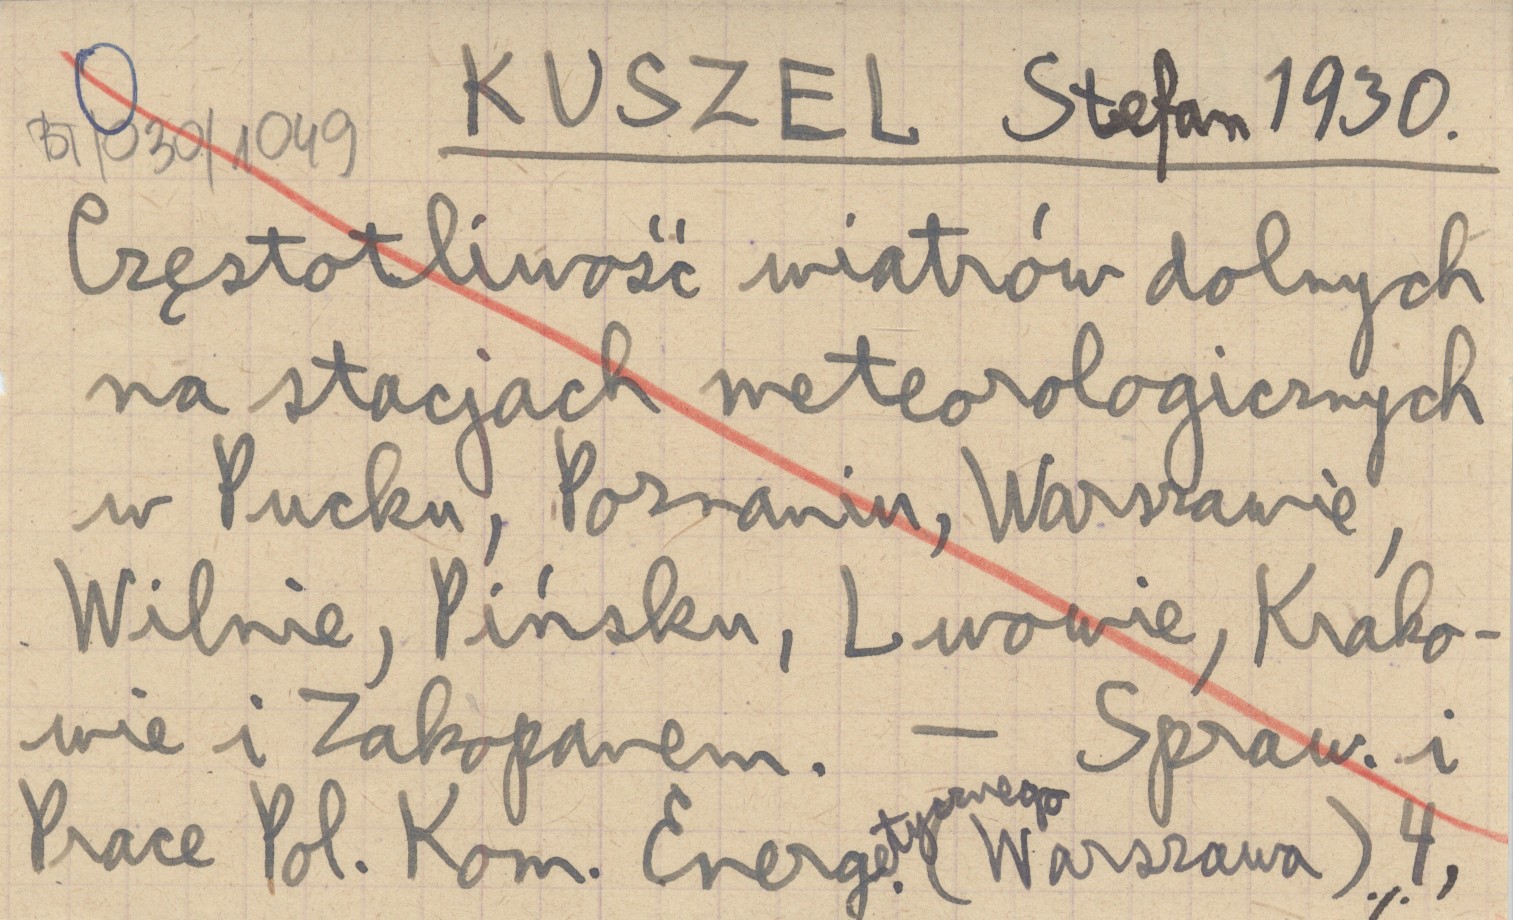 KUSZEL Stefan 1930.
BT/030/1049
Częstotliwość wiatrów dolnych
na stacjach meteorologicznych
w Pucku, Poznaniu, Warszawie,
Wilnie, Pińsku, Lwowie, Krako-
wie i Zakopanem. — Spraw. i
Prace Pol. Kom. Energetycznego (Warszawa) 4,
./.